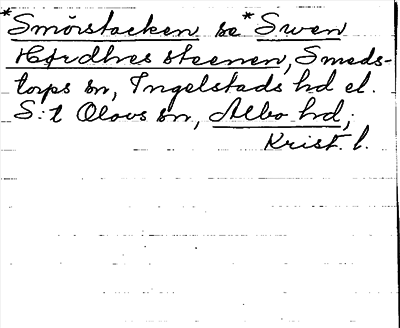 *Smörstacken se *Swen
Hfrdhes steenen, Smeds-
torps sn, Ingelstads hd el.
S:t Olovs sn, Albo hd,
Krist. l.